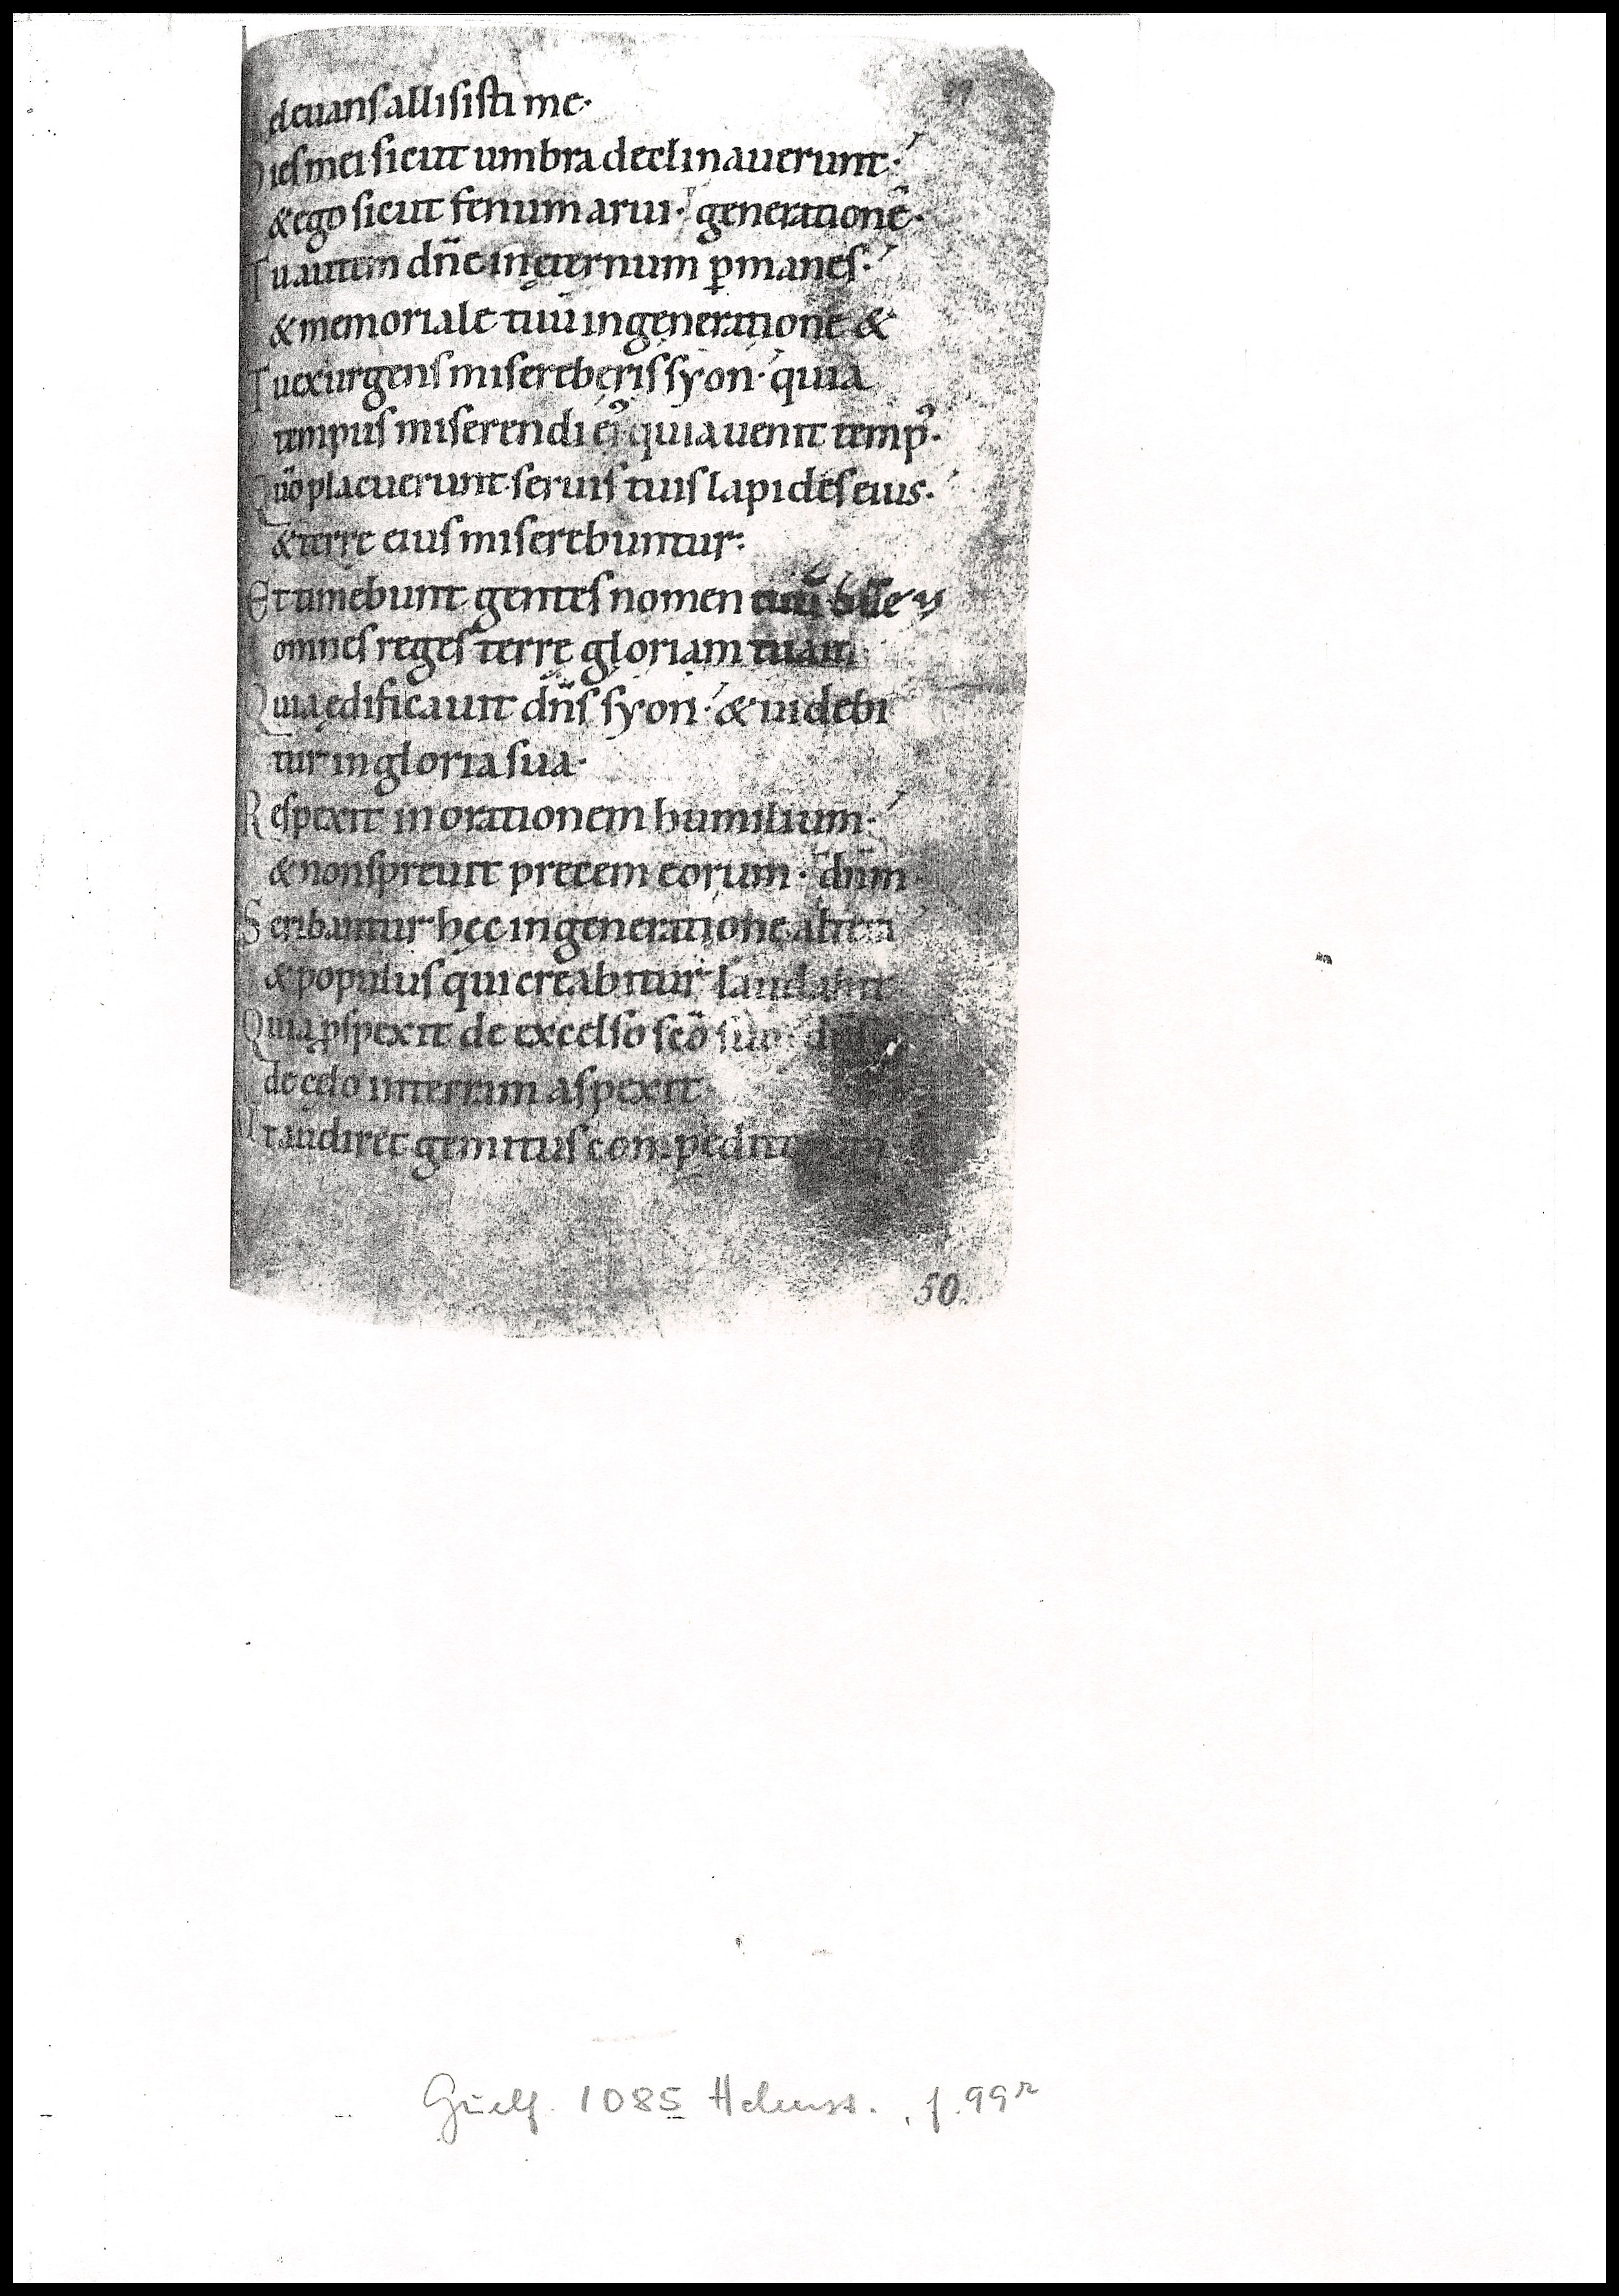 eleuans allisisti me·
Dies mei sicut umbra declinauerunt·
& ego sicut fenum arui· generationē·
Tu autem dn̄e in ęternum ꝑmanes·
& memoriale tuū in generatione &
Tu exurgens misereberis syon· quia
tempus miserendi eiꝰ quia uenit tempꝰ·
Qūo placuerunt seruis tuis lapides eius·
& terre eius miserebuntur·
Et timebunt gentes nomen tuū
omnes reges terrę gloriam tuam
Quia edificauit dn̄s syon· & uidebi
tur in gloria sua·
Respexit in orationem humilium·
& non spreuit precem eorum· dn̄m
Scribantur hęc in generatione altera
& populus qui creabitur laudabit
Quia ꝓspexit de excelso sc̄o suo·
de cęlo in terram aspexit·
Vt audiret gemitus
50
Guelf. 1085 Helmst., f. 99r